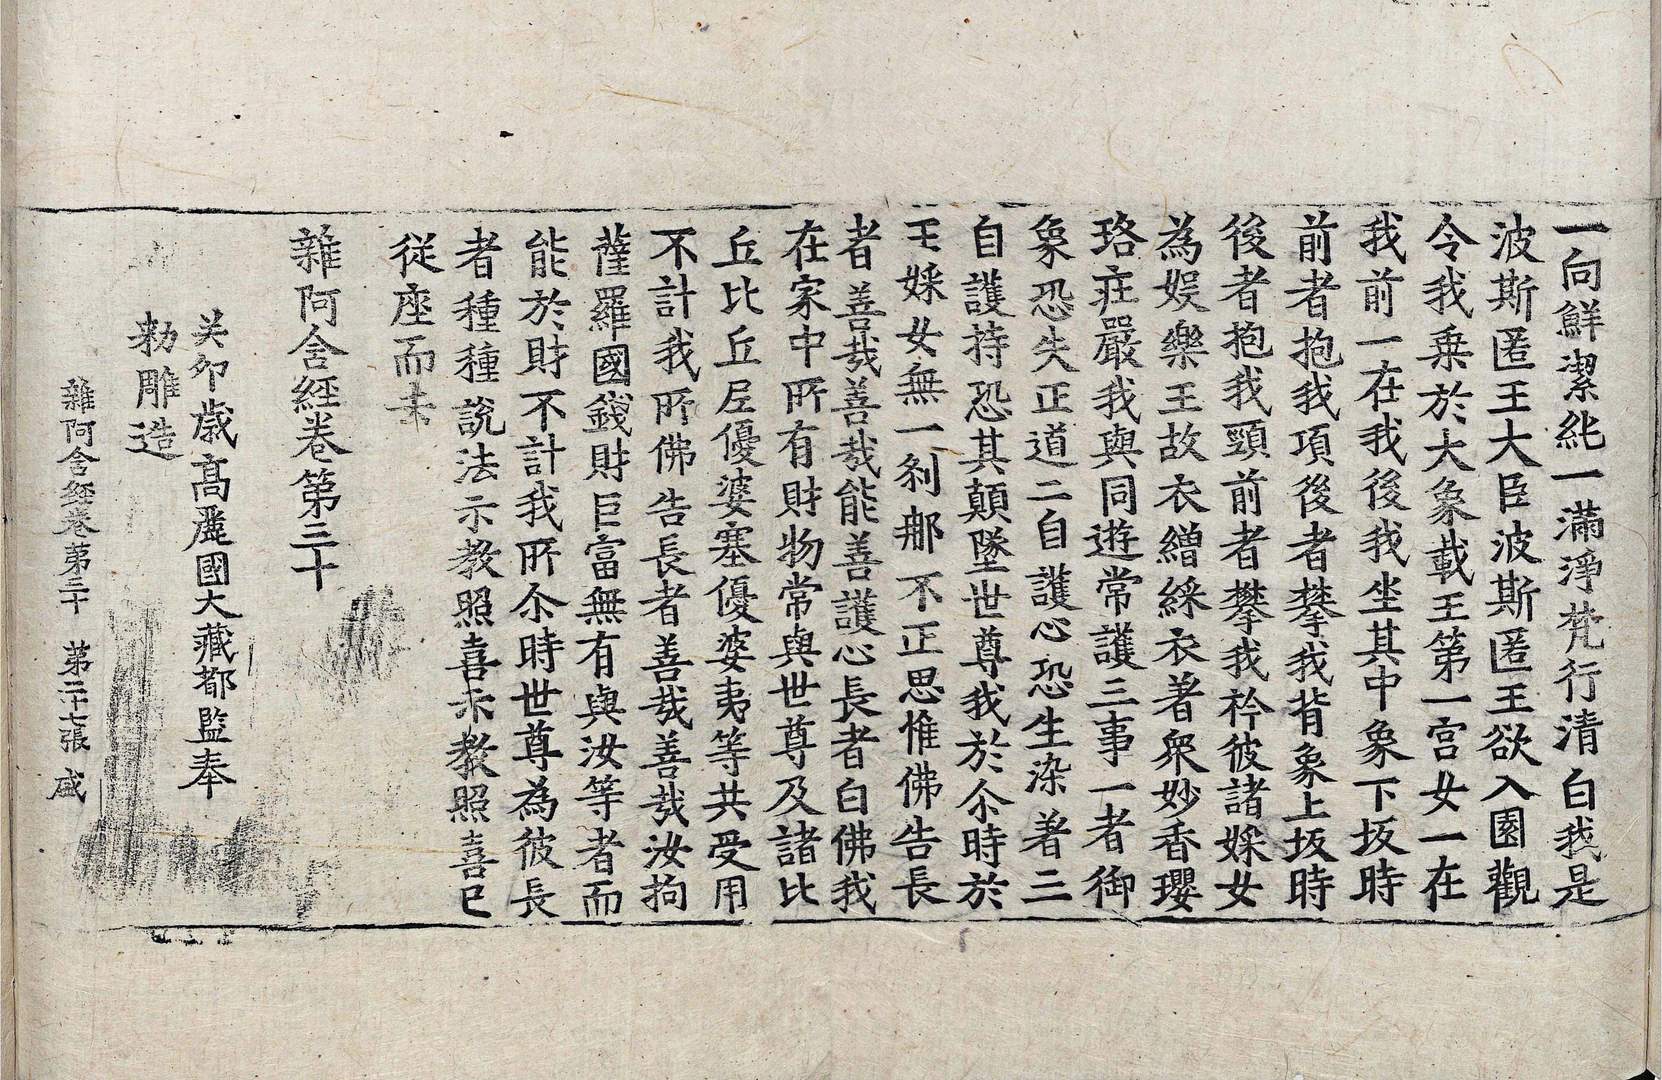 一向鮮潔純一滿淨梵行清白我是
波斯匿王大臣波斯匿王欲入園觀
令我乗於大象載王第一宮女一在
我前一在我後我坐其中象下坂時
前者抱我項後者攀我背象上坂時
後者抱我頸前者攀我衿彼諸婇女
為娛樂王故衣繒綵衣著衆妙香瓔
珞莊嚴我與同遊常護三事一者御
象恐失正道二自護心恐生染著三
自護持恐其顛墜世尊我於尒時於
王婇女無一剎那不正思惟佛告長
者善哉善哉能善護心長者白佛我
在家中所有財物常與世尊及諸比
丘比丘尼優婆塞優婆夷等共受用
不計我所佛告長者善哉善哉汝拘
薩羅國錢財巨富無有與汝等者而
能於財不計我所尒時世尊為彼長
者種種說法示教照喜示教照喜已
従座而去
雜阿含経卷第三十
癸卯歲高麗國大藏都監奉
勑雕造
雜阿含経卷第三十　第二十七張　盛